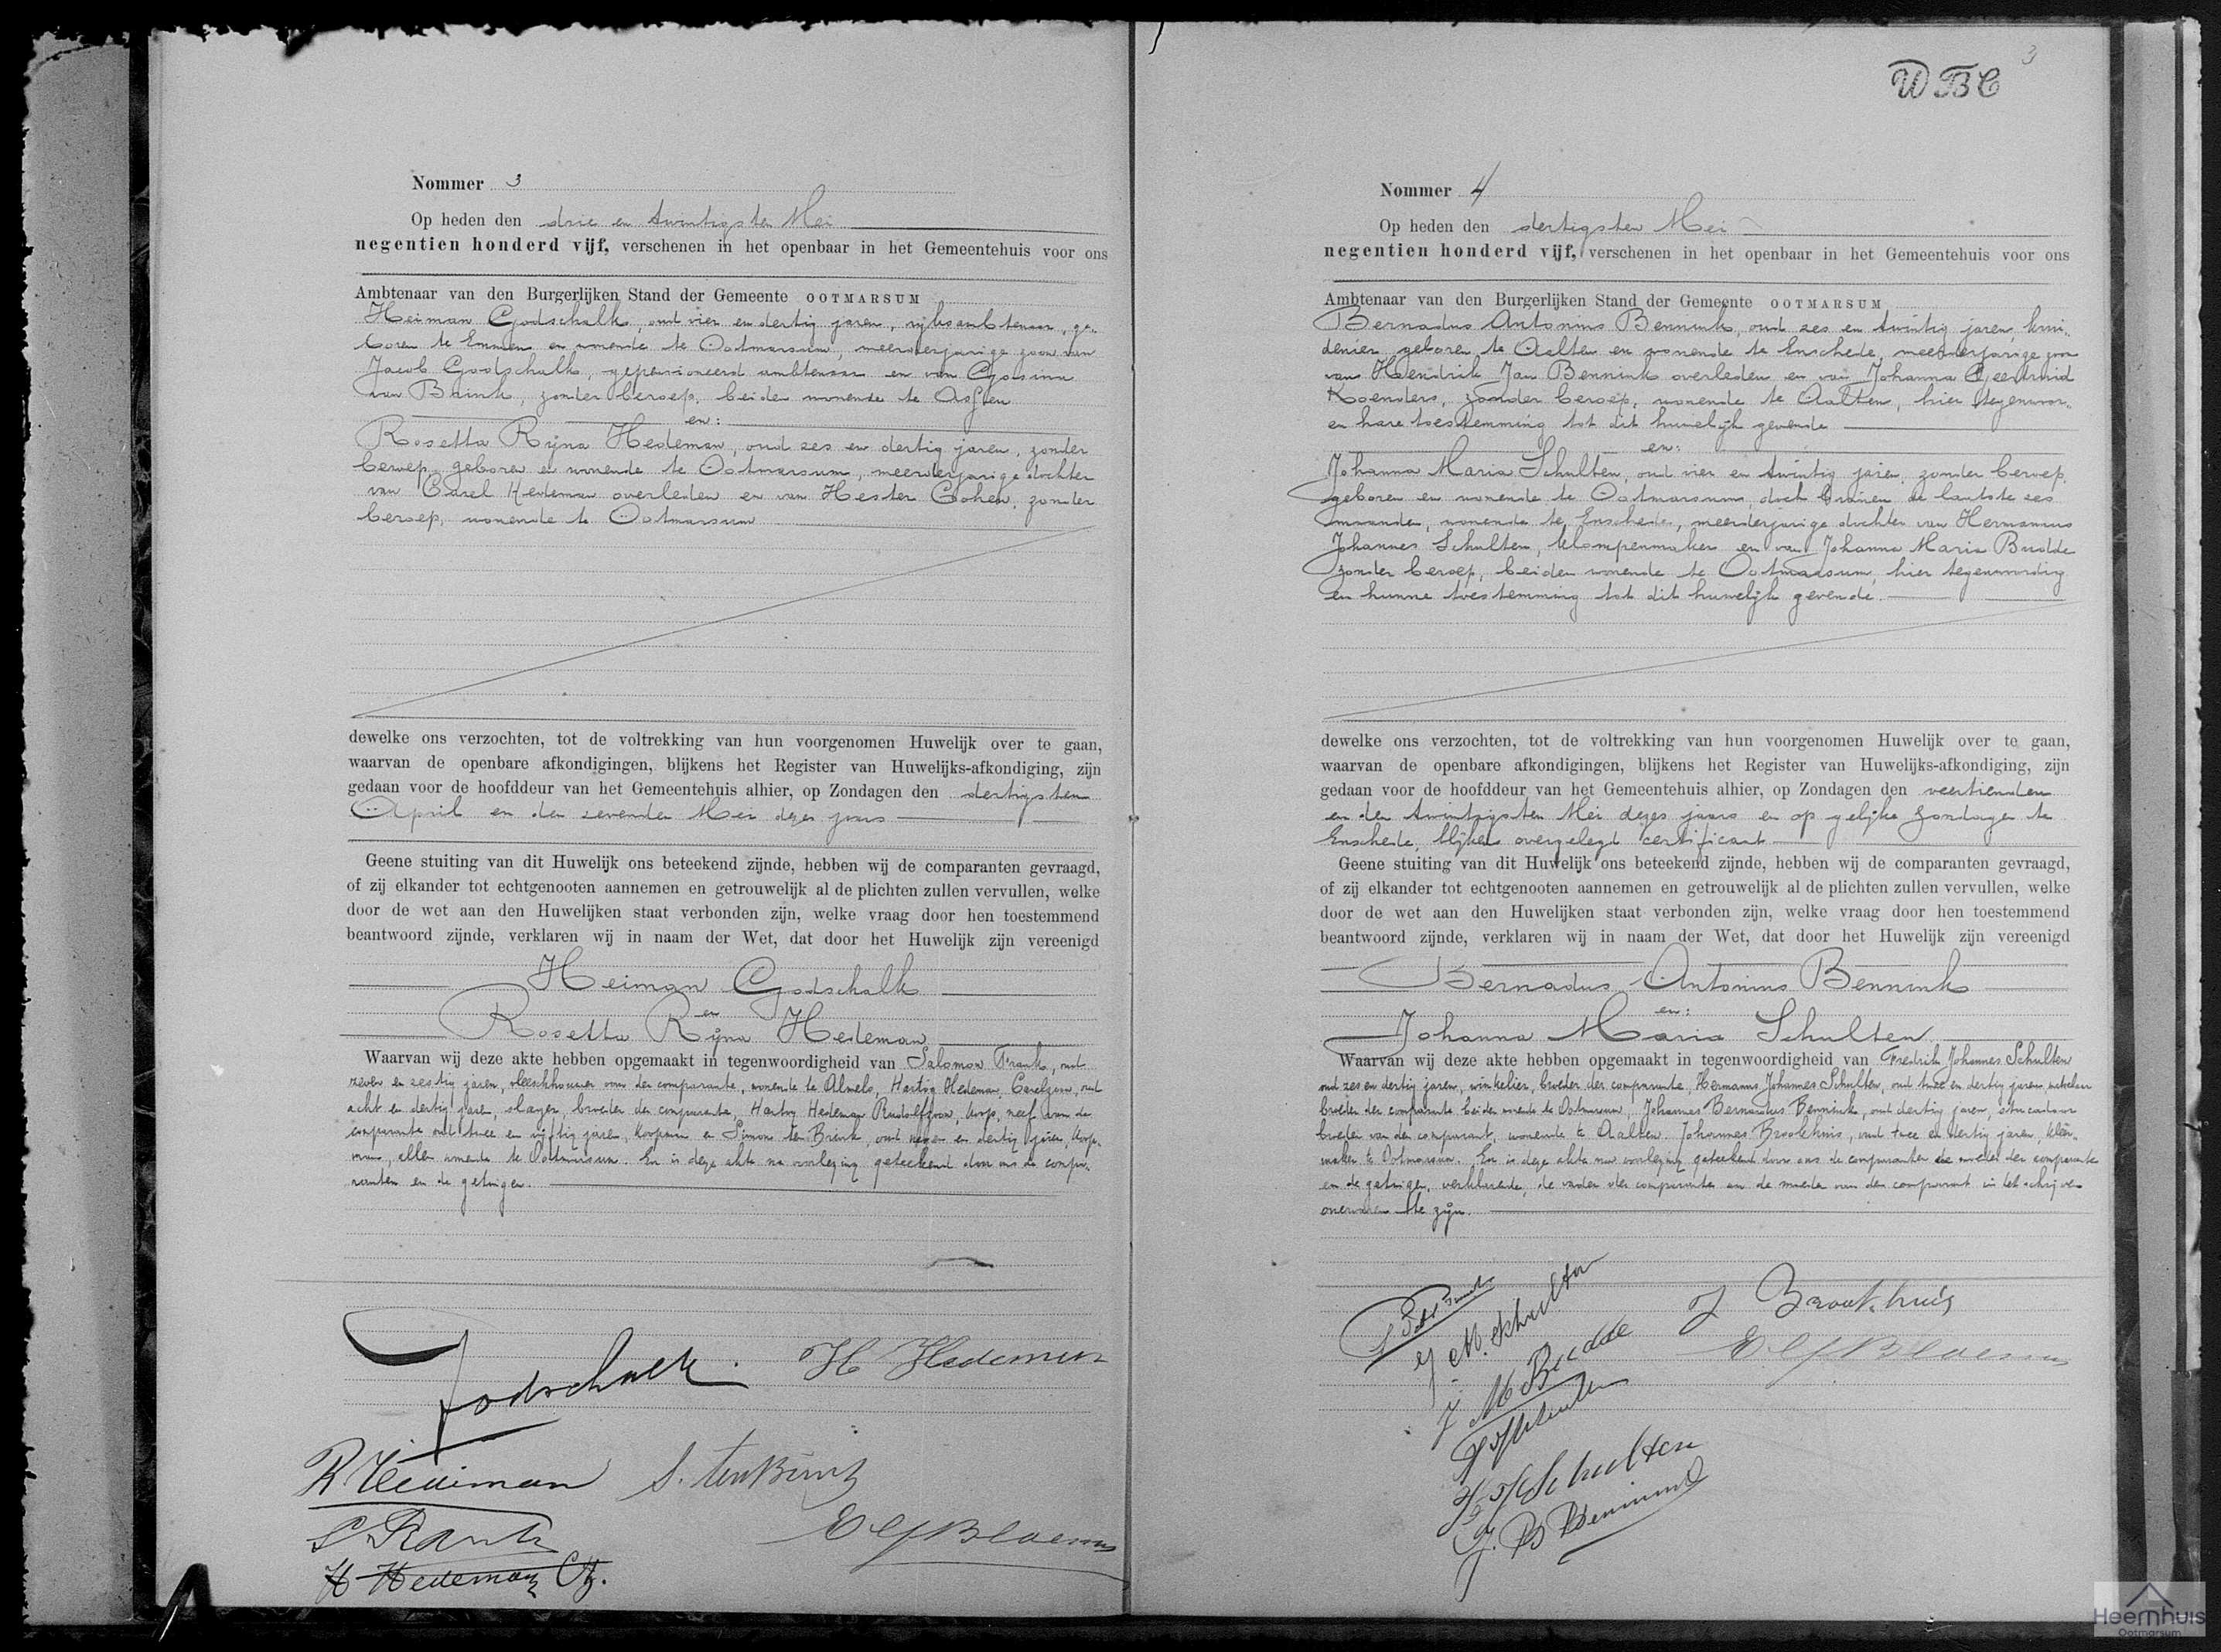 Nommer 3
Op heden den drie en twintigsten Mei
negentien honderd vijf, verschenen in het openbaar in het Gemeentehuis voor ons
Ambtenaar van den Burgerlijken Stand der Gemeente OOTMARSUM
Heiman Godschalk, oud vier en dertig jaren, rijksambtenaar, ge-
boren te Emmen en wonende te Ootmarsum, meerderjarige zoon van
Jacob Godschalk, gepensioneerd ambtenaar en van Gosina
van Brink, zonder beroep, beiden wonende te Assen
en:
Rosetta Rijna Hedeman, oud zes en dertig jaren, zonder
beroep, geboren en wonende te Ootmarsum, meerderjarige dochter
van Carel Hedeman overleden en van Hester Cohen, zonder
beroep, wonende te Ootmarsum
dewelke ons verzochten, tot de voltrekking van hun voorgenomen Huwelijk over te gaan,
waarvan de openbare afkondigingen, blijkens het Register van Huwelijks-afkondiging, zijn
gedaan voor de hoofddeur van het Gemeentehuis alhier, op Zondagen den dertigsten
April en den zevenden Mei dezes jaars
Geene stuiting van dit Huwelijk ons beteekend zijnde, hebben wij de comparanten gevraagd,
of zij elkander tot echtgenooten aannemen en getrouwelijk al de plichten zullen vervullen, welke
door de wet aan den Huwelijken staat verbonden zijn, welke vraag door hen toestemmend
beantwoord zijnde, verklaren wij in naam der Wet, dat door het Huwelijk zijn vereenigd
Heiman Godschalk
en
Rosetta Rijna Hedeman
Waarvan wij deze akte hebben opgemaakt in tegenwoordigheid van Salomon Frank, oud
zeven en zestig jaren, vleeschhouwer oom der comparante, wonende te Almelo, Hartog Hedeman, Carelzoon, oud
acht en dertig jaren, slager, broeder der comparante, Hartog Hedeman Rudolfzoon, neef van de
comparante oud twee en vijftig jaren, koopman en Simon ten Brink, oud negen en dertig jaren, koop-
man, allen wonende te Ootmarsum. En is deze akte na voorlezing geteekend door ons de compa-
ranten en de getuigen.
Godschalk. H Hedeman
R Hedeman S. tenBrink
S Frank
H Hedeman Cz.
WBC
3
Nommer 4
Op heden den dertigsten Mei
negentien honderd vijf, verschenen in het openbaar in het Gemeentehuis voor ons
Ambtenaar van den Burgerlijken Stand der Gemeente OOTMARSUM
Bernadus Antonius Bennink, oud zes en twintig jaren, krui-
denier, geboren te Aalten en wonende te Enschede, meerderjarige zoon
van Hendrik Jan Bennink overleden en van Johanna Geertruid
Koenders, zonder beroep, wonende te Aalten, hier tegenwoor-
en hare toestemming tot dit huwelijk gevende
en:
Johanna Maria Schulten, oud vier en twintig jaren, zonder beroep,
geboren en wonende te Ootmarsum, doch binnen de laatste zes
maanden, wonende te Enschede, meerderjarige dochter van Hermannus
Johannes Schulten, klompenmaker en van Johanna Maria Budde
zonder beroep, beiden wonende te Ootmarsum, hier tegenwoordig
en hunne toestemming tot dit huwelijk gevende.
dewelke ons verzochten, tot de voltrekking van hun voorgenomen Huwelijk over te gaan,
waarvan de openbare afkondigingen, blijkens het Register van Huwelijks-afkondiging, zijn
gedaan voor de hoofddeur van het Gemeentehuis alhier, op Zondagen den veertienden
en den twintigsten Mei dezes jaars en op gelijke Zondagen te
Enschede, blijkens overgelegd certificaat
Geene stuiting van dit Huwelijk ons beteekend zijnde, hebben wij de comparanten gevraagd,
of zij elkander tot echtgenooten aannemen en getrouwelijk al de plichten zullen vervullen, welke
door de wet aan den Huwelijken staat verbonden zijn, welke vraag door hen toestemmend
beantwoord zijnde, verklaren wij in naam der Wet, dat door het Huwelijk zijn vereenigd
Bernadus Antonius Bennink
en:
Johanna Maria Schulten
Waarvan wij deze akte hebben opgemaakt in tegenwoordigheid van Fredrik Johannes Schulten
oud zes en dertig jaren, winkelier, broeder der comparante, Hermannus Johannes Schulten, oud twee en dertig jaren
broeder der comparante beiden wonende te Ootmarsum, Johannes Bernardus Bennink, oud dertig jaren, stucadoor
broeder van den comparant, wonende te Aalten. Johannes Brookhuis, oud twee en dertig jaren, kleer-
maker te Ootmarsum. En is deze akte na voorlezing geteekend door ons de comparanten de moeder der comparante
en de getuigen, verklarende, de vader der comparante en de moeder van den comparant in het schrijven
onervaren te zijn.
J M. Schulten J Brookhuis
J M Budde
H J Schulten
J. B Bennink
Heernhuis
Ootmarsum